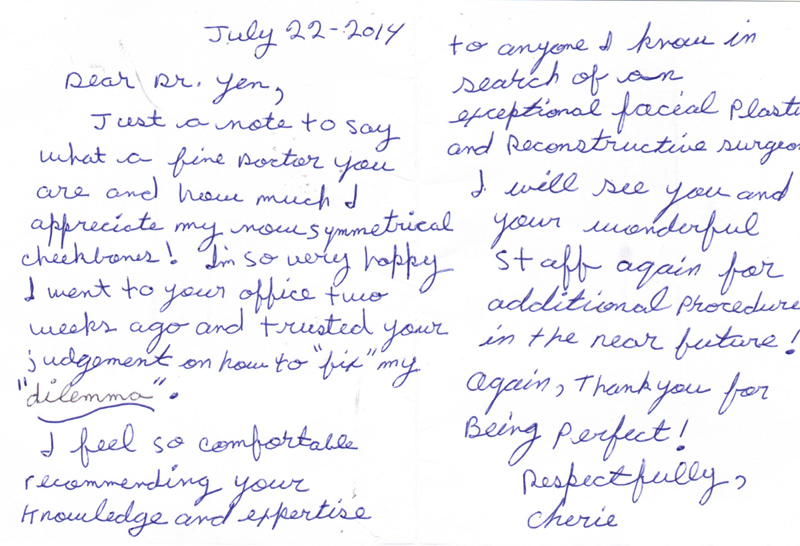 July 22-2014
Dear Dr. Yen,
Just a note to say
what a fine Doctor you
are and how much I
appreciate my now symmetrical
cheekbones! I'm so very happy
I went to your office two
weeks ago and trusted your
judgement on how to "fix" my
"dilemma".
I feel so comfortable
recommending your
knowledge and expertise
to anyone I know in
search of an
exceptional facial Plasti
and Reconstructive surgeo
I will see you and
your wonderful
staff again for
additional procedure
in the near future!
Again, Thank you for
Being Perfect!
Respectfully,
Cherie